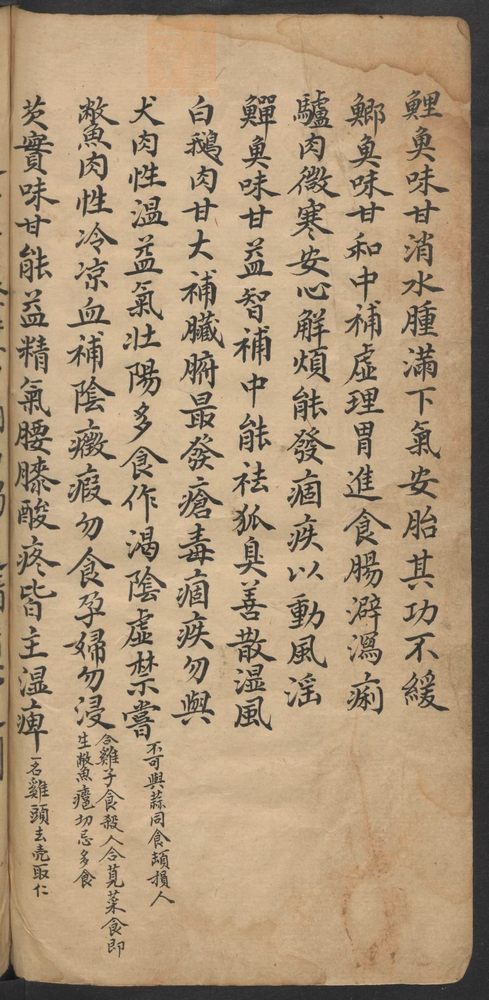 鯉魚味甘消水腫滿下氣安胎其功不緩
鯽魚味甘和中補虛理胃進食腸澼瀉痢
驢肉微寒安心解煩能發痼疾以動風淫
鱓魚味甘益智補中能祛狐臭善散濕風
白鵝肉甘大補臟腑最發瘡毒痼疾勿與
犬肉性溫益氣壯陽多食作渴陰虛禁嘗 不可與蒜同食頓損人
鱉肉性冷凉血補陰癥瘕勿食孕婦勿浸 合雞子食殺人合莧菜食即
生鱉魚癥切忌多食
芡實味甘能益精氣腰膝酸疼皆主濕痺 一名雞頭去壳取仁